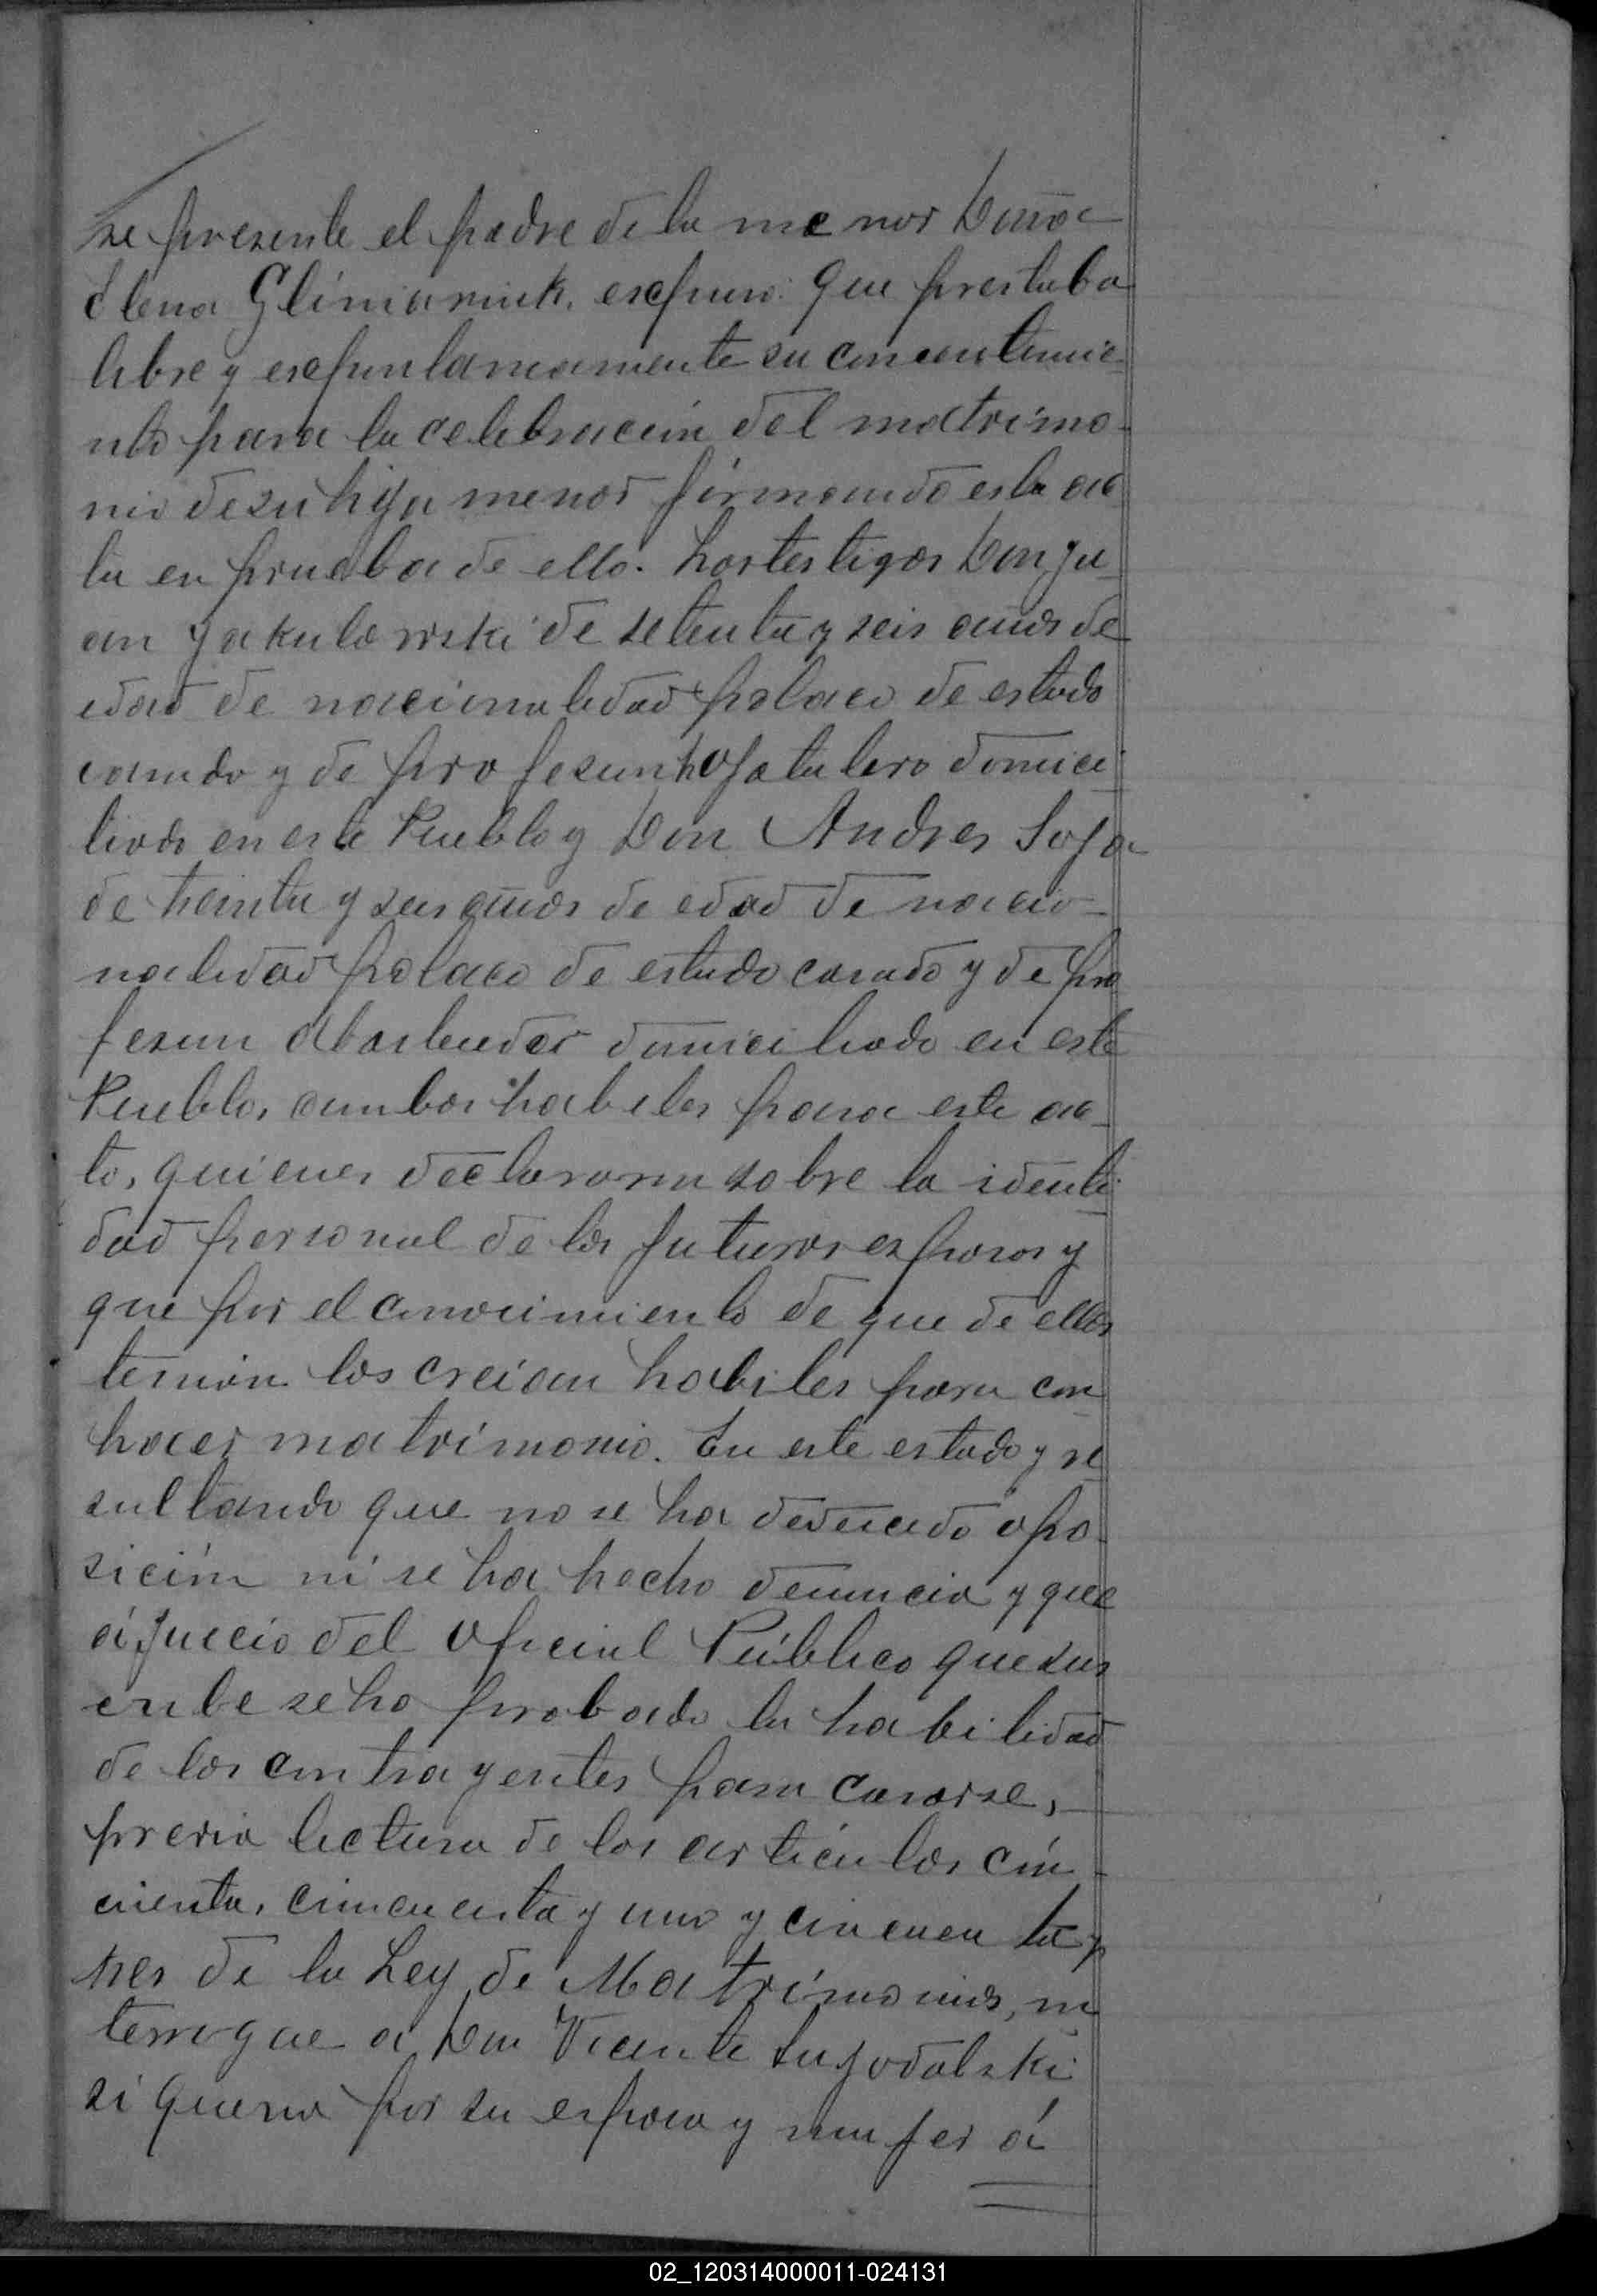 se presente el padre de la menor Doña
Elena Gliniarniuk, expuso: que prestaba
libre y expontaneamente su consentimie-
nto para la celebracion del matrimo-
nio de su hija menor firmando esta ac-
ta en prueba de ello. Los testigos Don Ju-
an Jakulowski de setenta y seis años de
edad de nacionalidad polaco de estado
casado y de profesion domici-
liado en este Pueblo y Don Andres Soja
de treinta y seis años de edad de nacio-
nalidad polaco de estado casado y de pro
fesion domiciliado en este
Pueblo, ambos habeles para este ac-
to, quienes declararon sobre la identi-
dad personal de los futuros esposos y
que por el conocimiento de que de ellos
tenian los creian habiles para con
traer matrimonio. En este estado y re
sultando que no se ha deducido opo-
sición ni se ha hecho denuncia y que
á juicio del Oficial Público que sus
cribe se ha probado la habilidad
de los contrayentes para casarse,
previa lectura de los artículos cin-
cuenta, cincuenta y uno y cincuenta y
tres de la Ley de Matrimonios, in
terrogue a Don Vicente
si queria por su esposa y mujer á
02_120314000011-024131